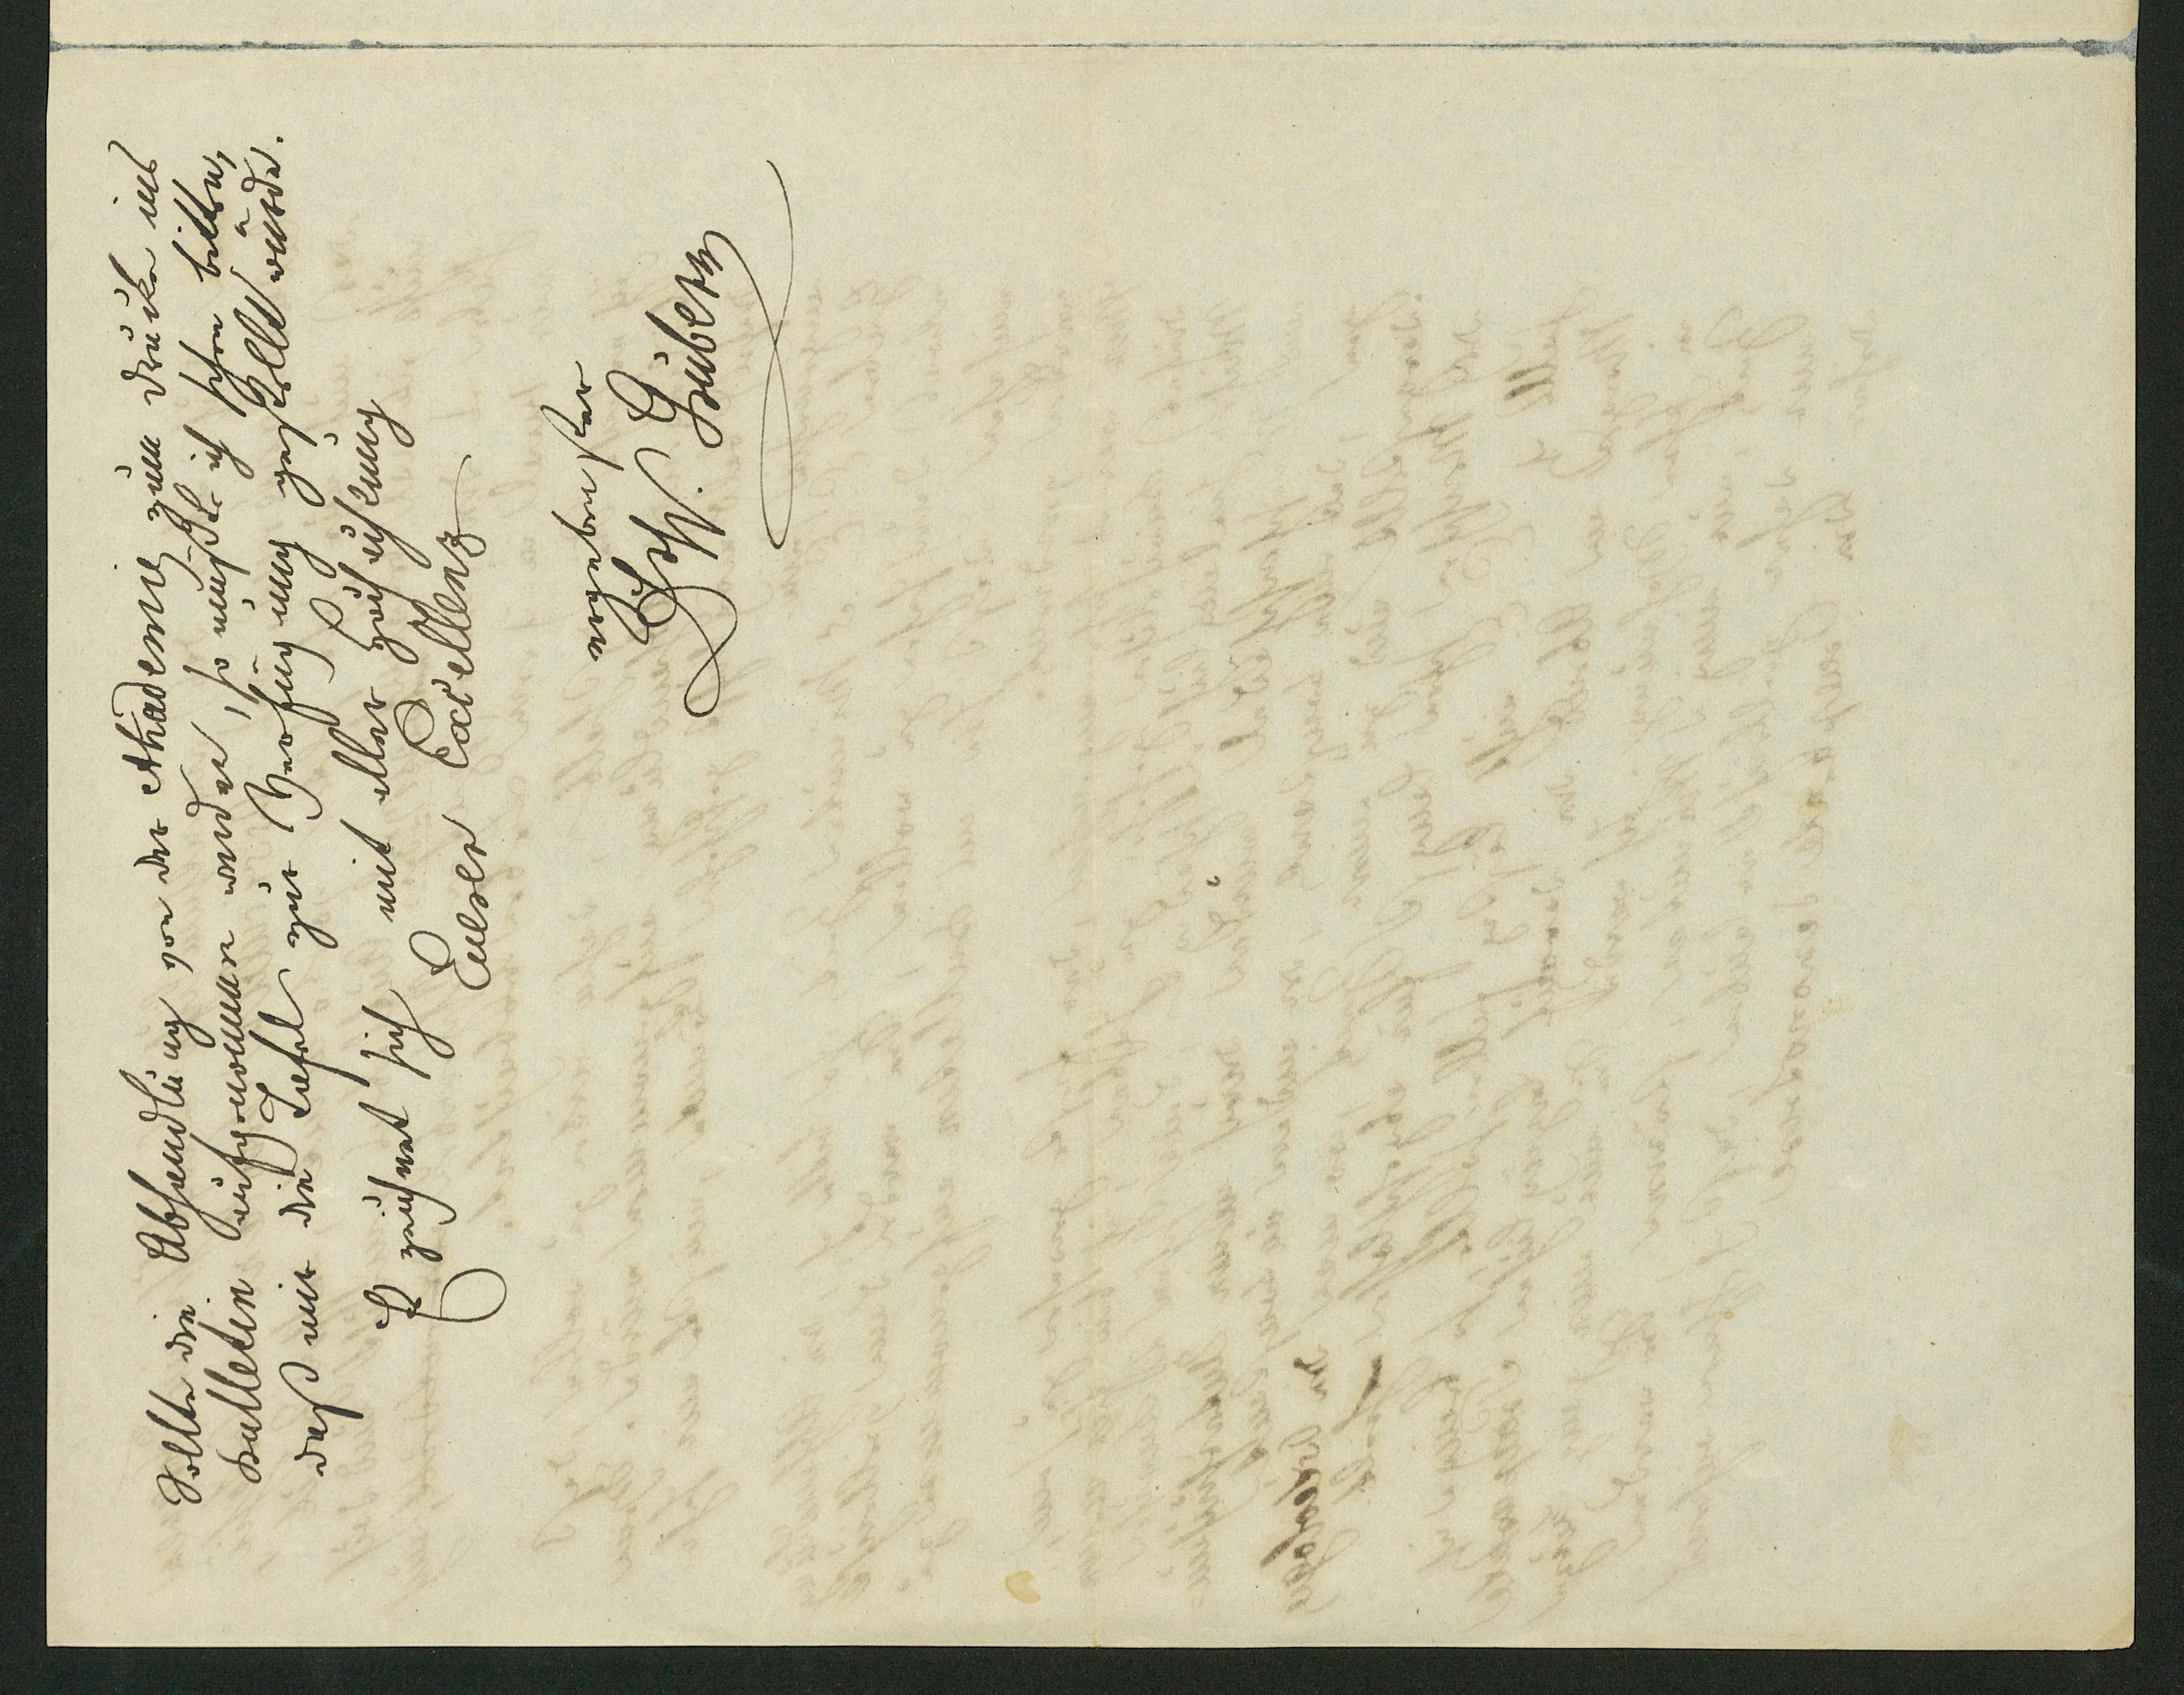 Sollte die Abhandlung von der Akademie zum Drucke ins
Bulletin aufgenommen werden, so müsste ich schon bitten,
daß mir die Tafel zur Verfügung gestellt würde.
Es zeichnet sich mit aller Hochachtung
Eurer Excellenz
ergebenster
W. Gruber